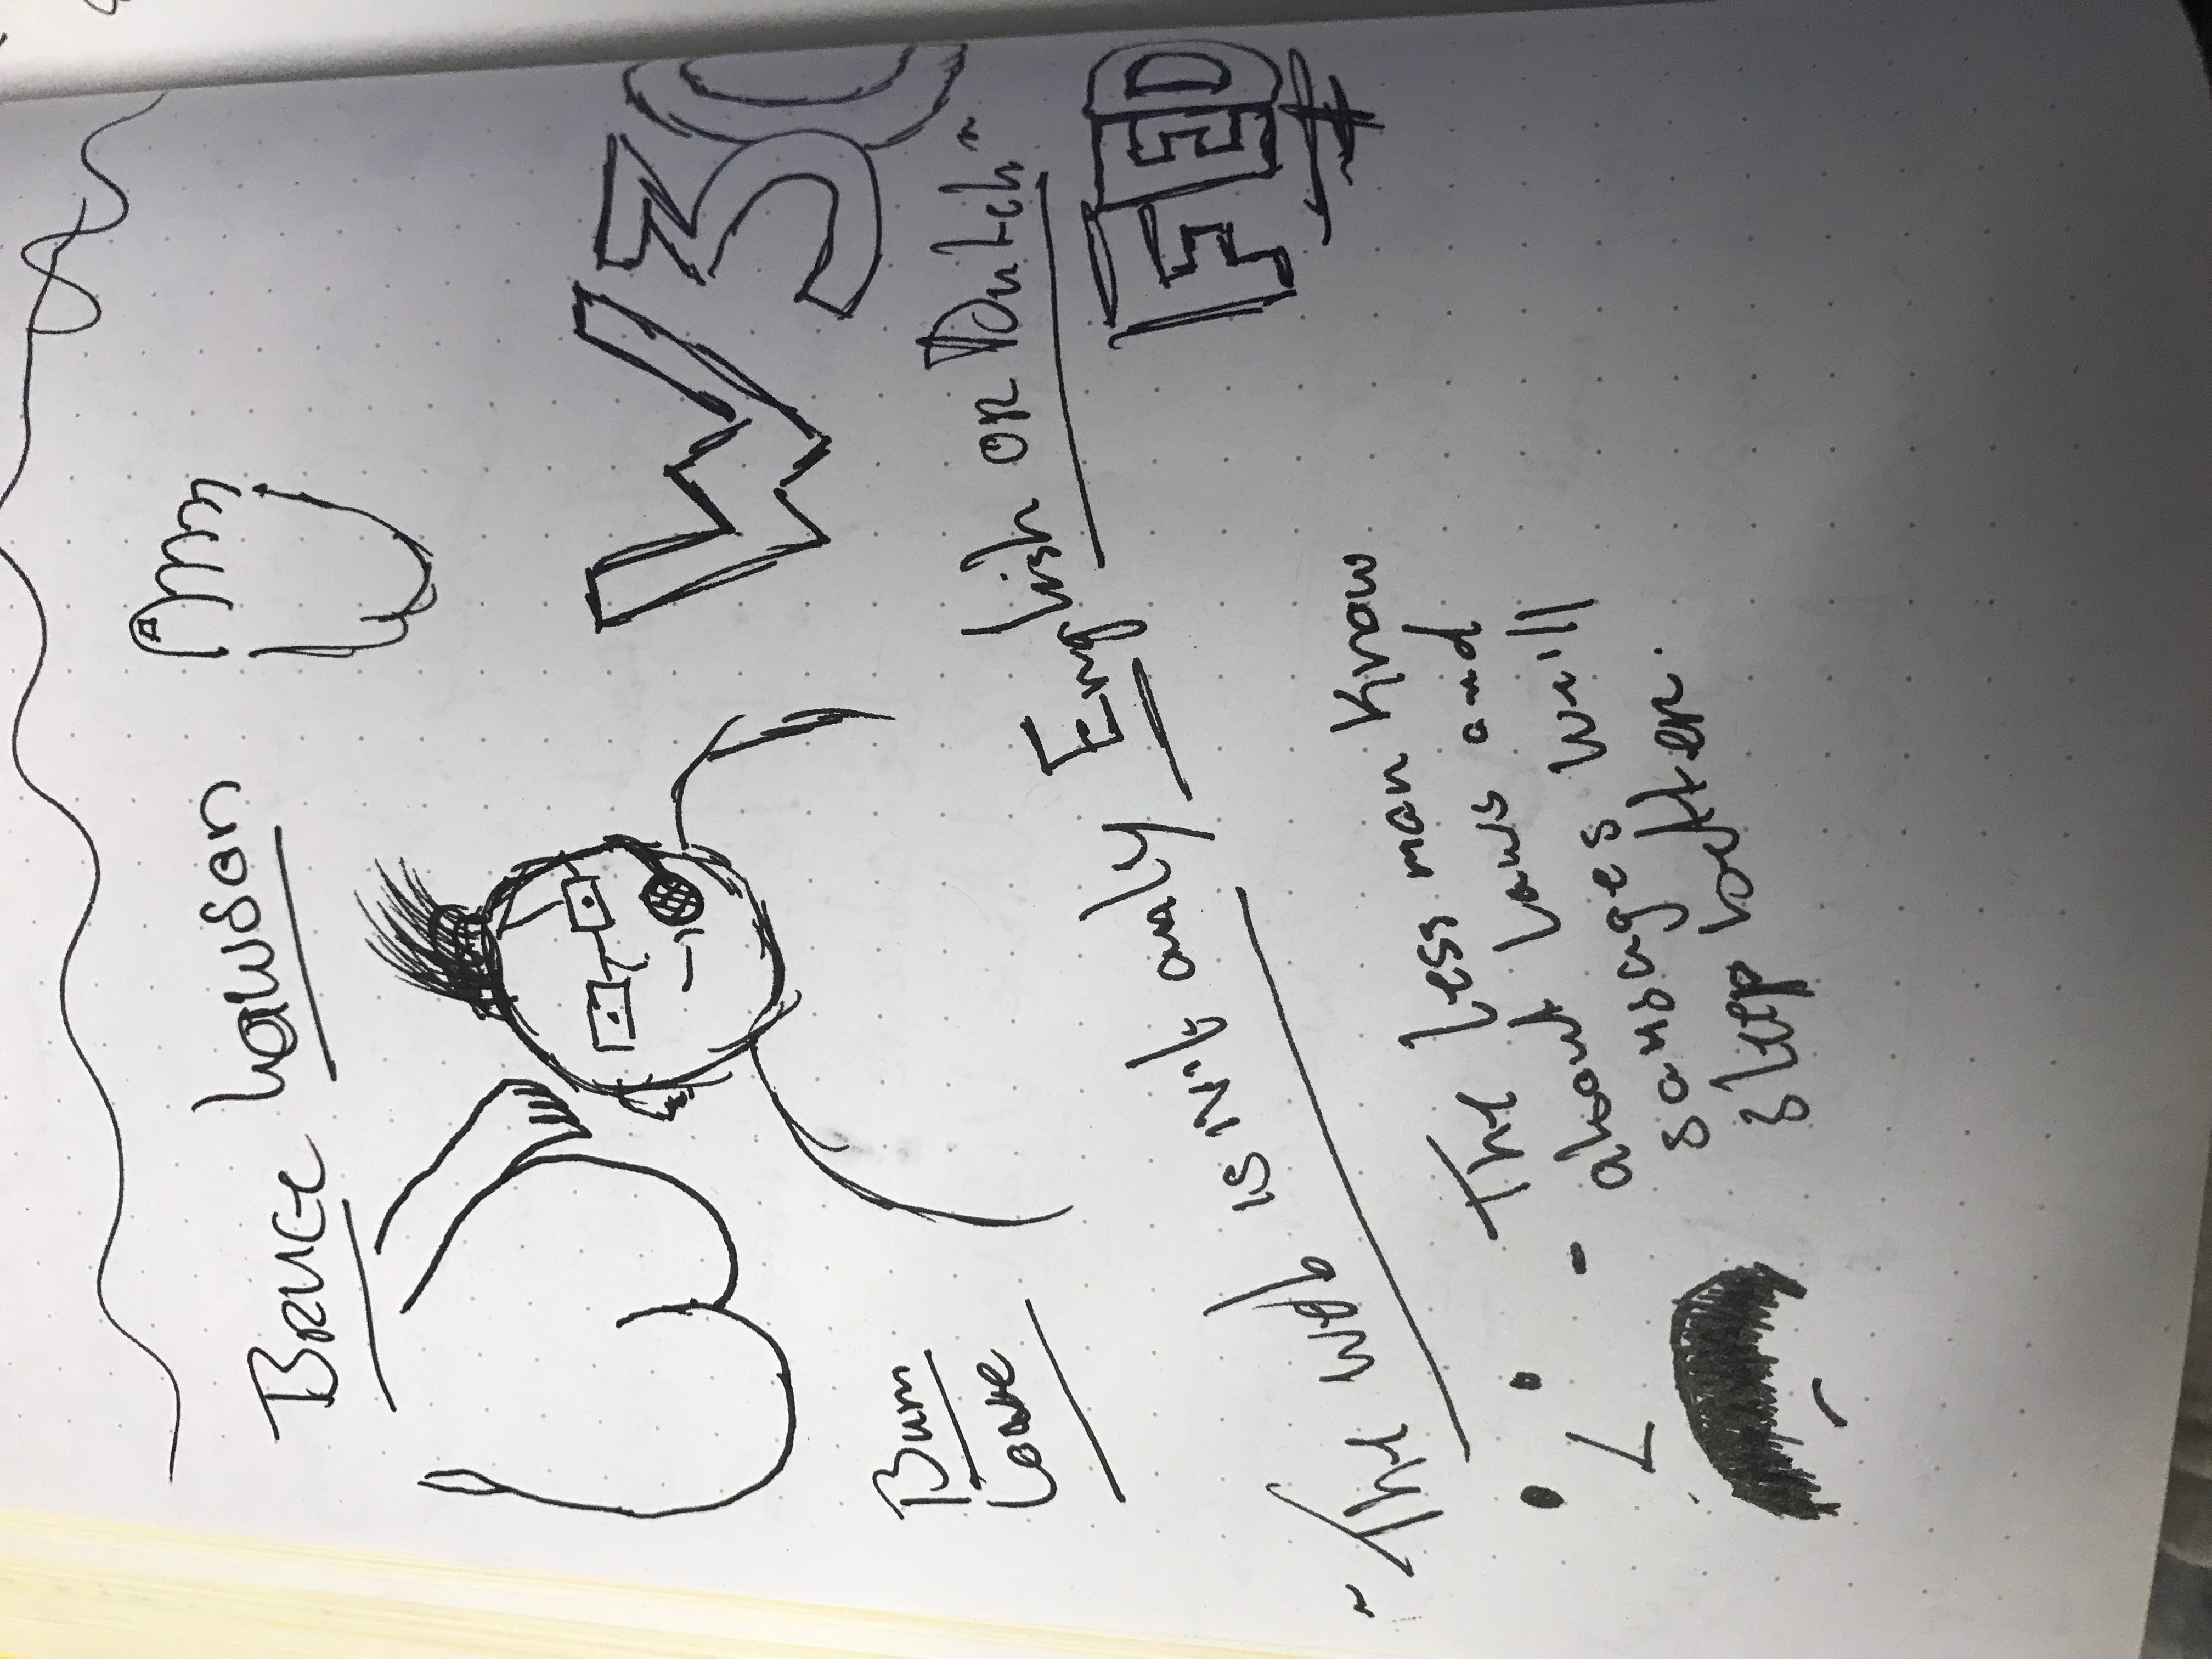 Bruce Lawson
W3C
Bum
"The web is not only English or Dutch"
FED
- The less man know
about laws and
sausages will
sleep better.